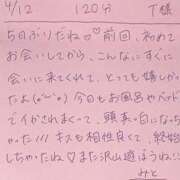 4/12 120分 T様
5日ぶりだね♡ 前回、初めて
お会いしてから、こんなにすぐに
会いに来てくれて、とっても嬉しかっ
たよ(o˘◡˘o) 今日もお風呂やベッド
でイかされまくって、頭真っ白になっち
ゃった!!! キスも相性良くて、終始
しちゃったね♡ また沢山遊ぼうね!!
みと